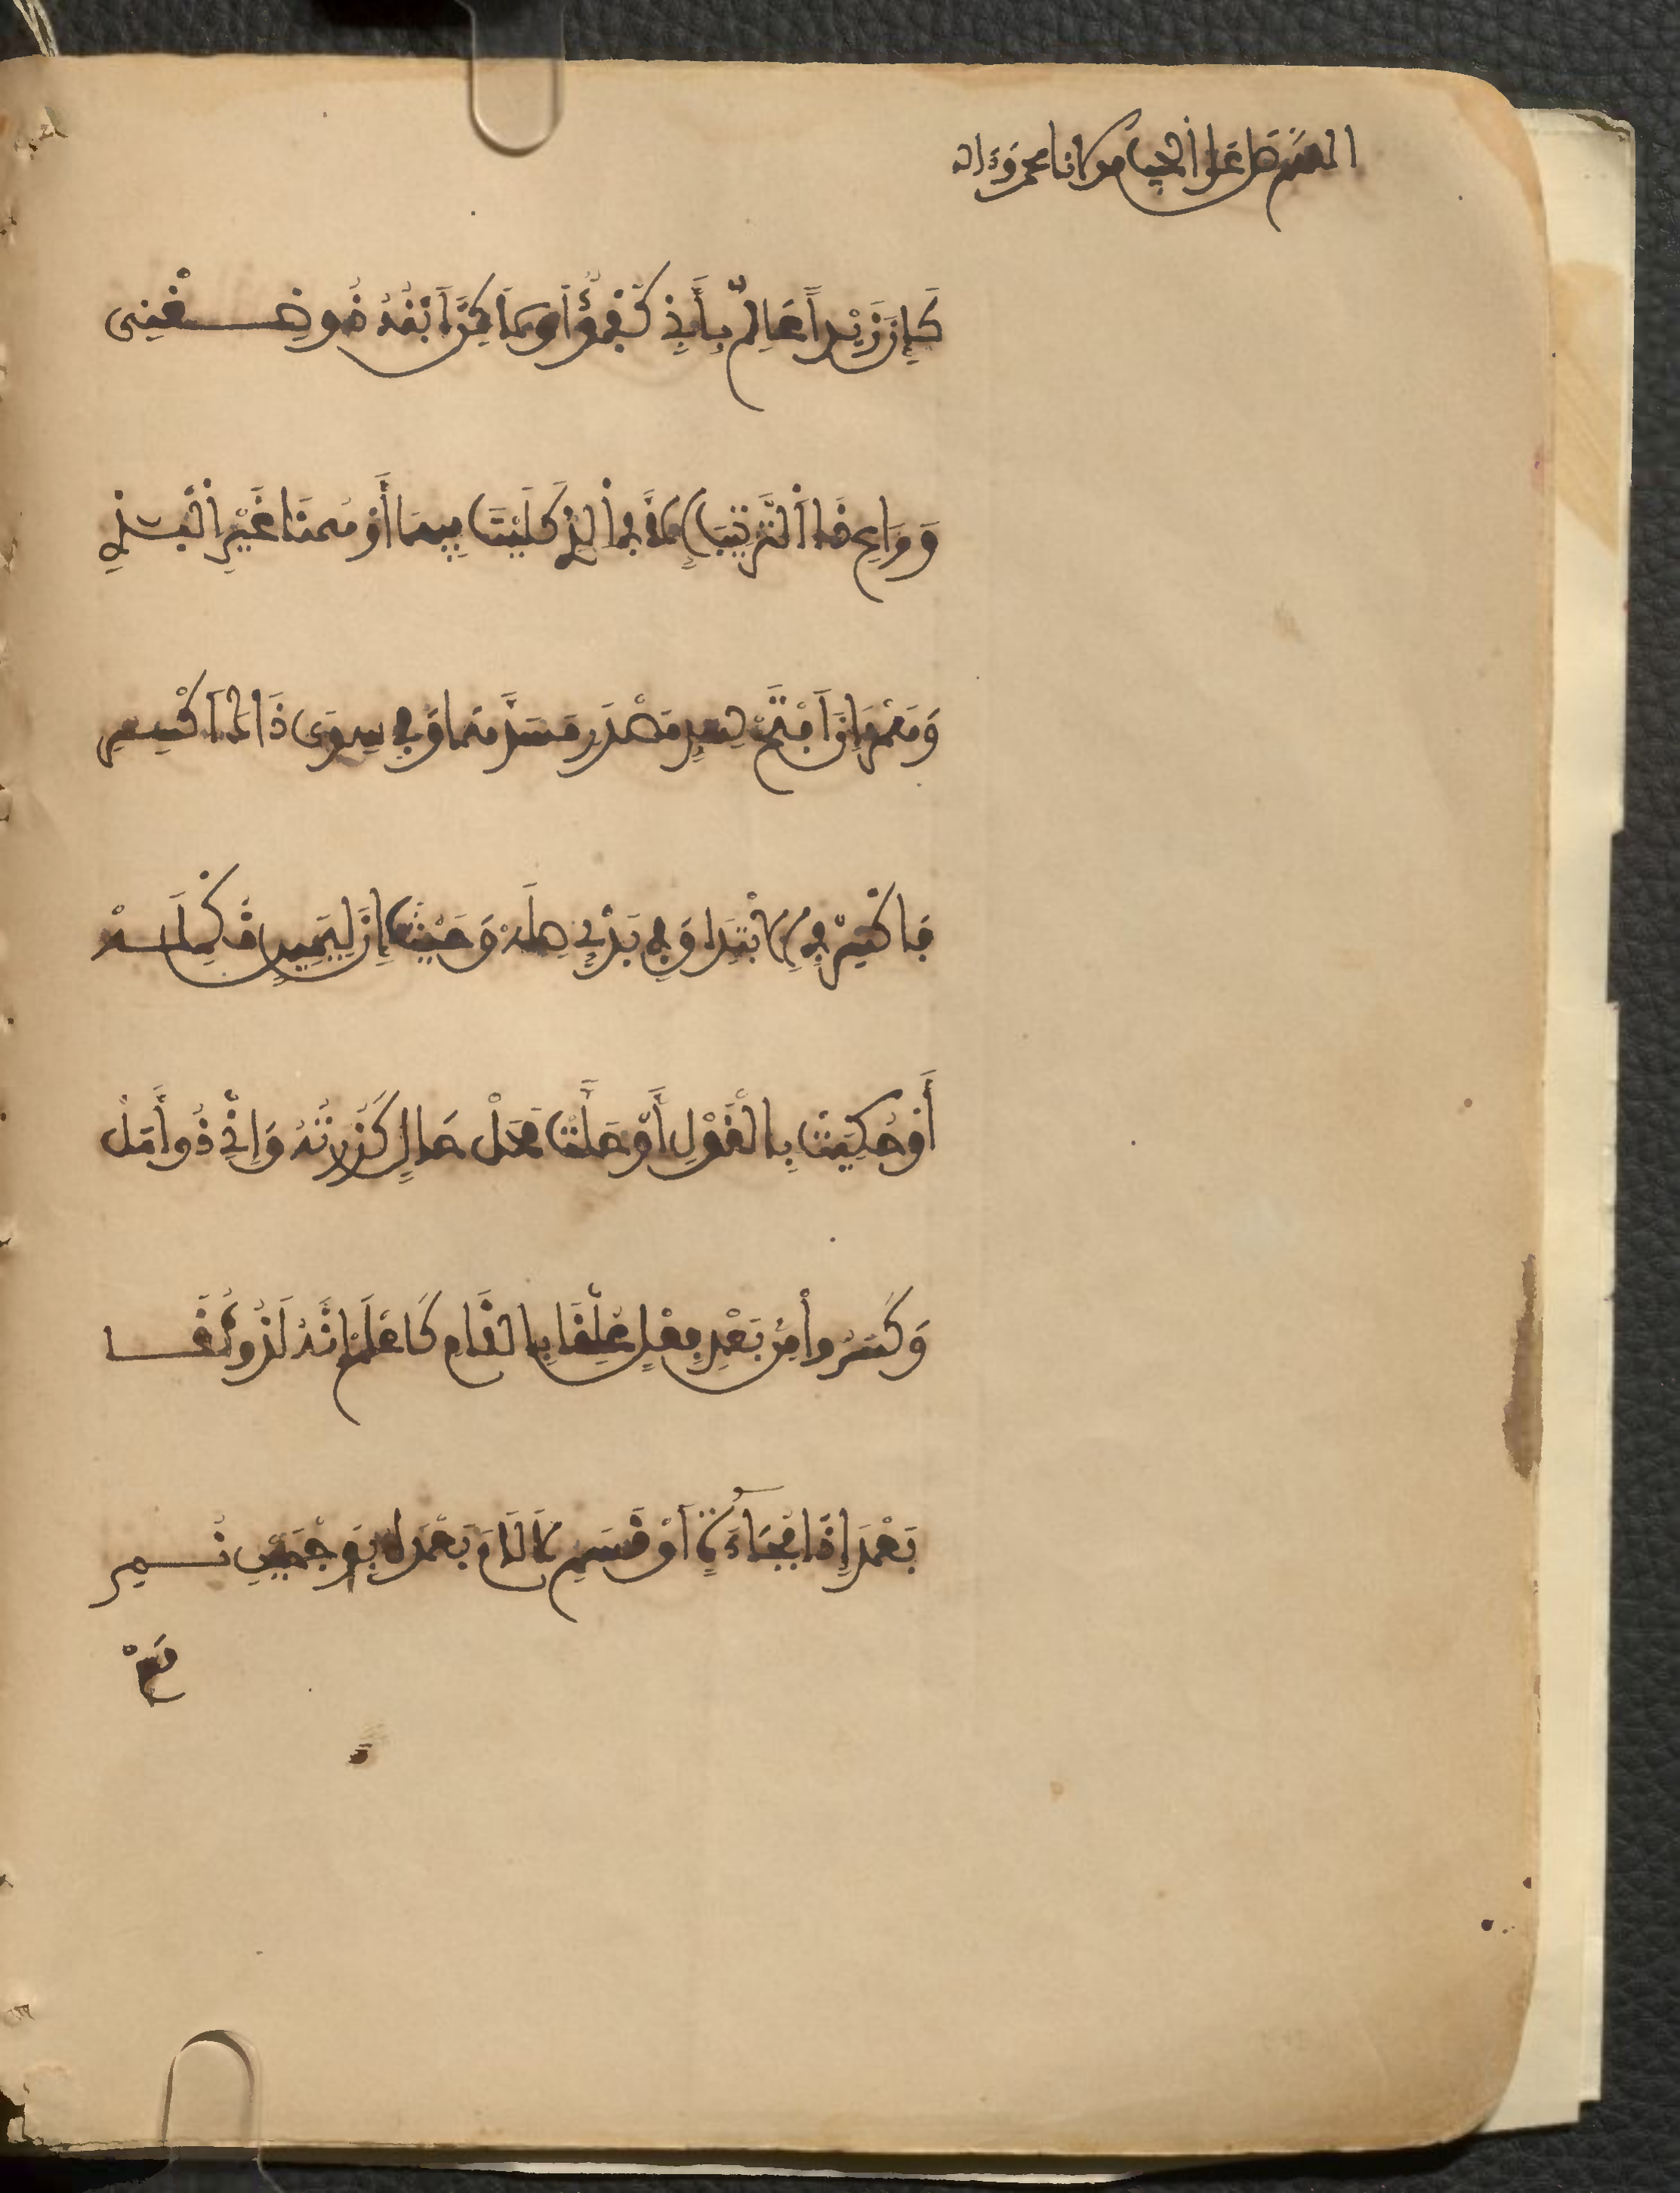 اللهم صل على الحبيب مولانا محمد وءاله
كَإِنَّ زَيْداً عَالِمٌ بِأَنِّي كُفْؤٌ وَلَكِنَّ ابْنَهُ ذُو ضِغْنِ
وَرَاعِ ذَا التَّرْتِيبَ إِلَّا فِي الذِي كَلَيْتَ فِيهَا أَوْ هُنَا غَيْرَ الْبَذِي
وَهَمْزَ إِنَّ افْتَحْ لِسَدِّ مَصْدَرِ مَسَدَّهَا وَفِي سِوَى ذَاكَ اكْسِرِ
فَاكْسِرْ فِي الِابْتِدَا وَفِي بَدْءِ صِلَهْ وَحَيْثُ إِنَّ لِيَمِينٍ مُكْمِلَهْ
أَوْ حُكِيَتْ بِالْقَوْلِ أَوْ حَلَّتْ مَحَلْ حَالٍ كَزُرْتُهُ وَإِنِّي ذُو أَمَلْ
وَكَسَرُوا مِنْ بَعْدِ فِعْلٍ عُلِّقَا بِاللَّامِ كَاعْلَمْ إِنَّهُ لَذُو تُقَى
بَعْدَ إِذَا فُجَاءَةٍ أَوْ قَسَمِ لَا لَامَ بَعْدَهُ بِوَجْهَيْنِ نُمِي
مَعْ